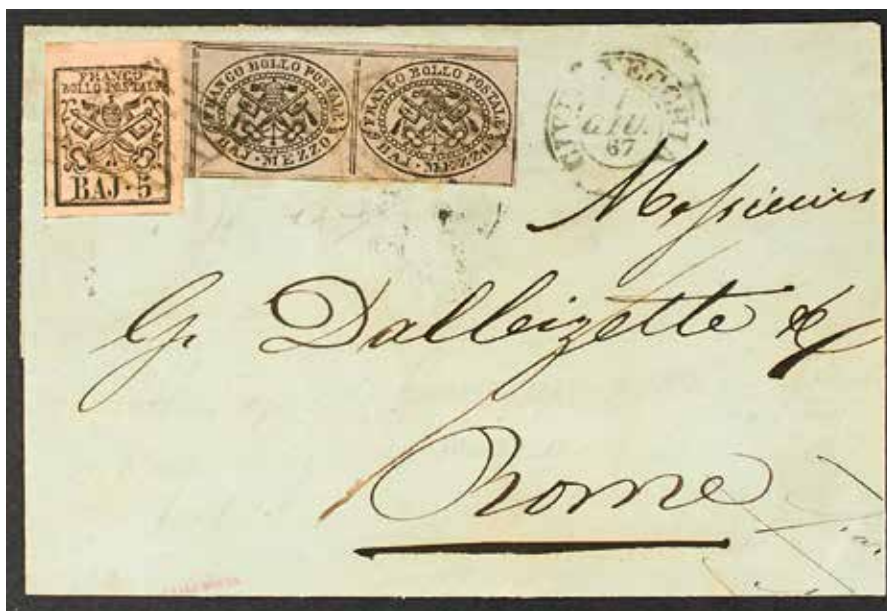 FRANCO
BOLLO POSTALE
BAJ · 5
FRANCO BOLLO POSTALE
BAJ · MEZZO
FRANCO BOLLO POSTALE
BAJ · MEZZO
GIU.
67
Messieurs
G. Dalbizette &
Rome